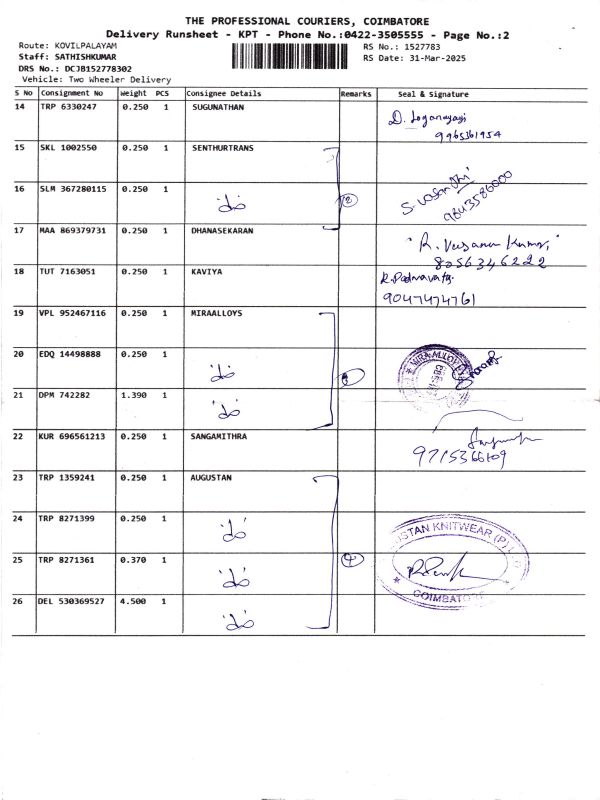 THE PROFESSIONAL COURIERS, COIMBATORE
Delivery Runsheet - KPT - Phone No.:0422-3505555 - Page No.:2
Route: KOVILPALAYAM RS No.: 1527783
Staff: SATHISHKUMAR RS Date: 31-Mar-2025
DRS No.: DCJB152778302
Vehicle: Two Wheeler Delivery
S No Consignment No Weight PCS Consignee Details Remarks Seal & Signature
14 TRP 6330247 0.250 1 SUGUNATHAN D. Loganayagi
9965361954
15 SKL 1002550 0.250 1 SENTHURTRANS
16 SLM 367280115 0.250 1 2 S. Vasanthi
9843586000
17 MAA 869379731 0.250 1 DHANASEKARAN
8056346222
18 TUT 7163051 0.250 1 KAVIYA
9047474761
19 VPL 952467116 0.250 1 MIRAALLOYS
20 EDQ 14498888 0.250 1
21 DPM 742282 1.390 1
22 KUR 696561213 0.250 1 SANGAMITHRA
9715366109
23 TRP 1359241 0.250 1 AUGUSTAN
24 TRP 8271399 0.250 1
25 TRP 8271361 0.370 1 4
KNITWEAR (P)
COIMBATORE
26 DEL 530369527 4.500 1